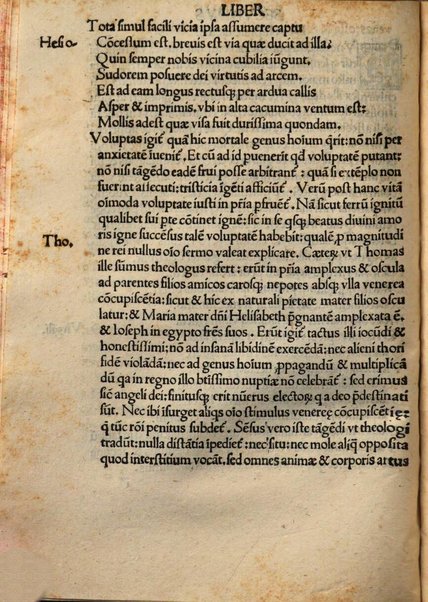 LIBER
Tota simul facili vicia ipsa assumere captu
Hesio. Cōcessum est, brevis est via quæ ducit ad illa:
Quin semper nobis vicina cubilia iūgunt.
Sudorem posuere dei virtutis ad arcem.
Est ad eam longus rectusq; per ardua callis
Asper & imprimis. vbi in alta cacumina ventum est:
Mollis adest quæ visa fuit durissima quondam.
Voluptas igit᷑ quā hic mortale genus hoīum q̄rit: nō nisi per
anxietatē īuenit᷑. Et cū ad id puenerit qd voluptatē putant:
nō nisi tāgēdo eadē frui posse arbitrant᷑ : quā si extēplo non
fuerint assecuti: tristicia īgēti afficiunt᷑. Verū post hanc vitā
oīmoda voluptate iusti in pr̄ia pfruent᷑. Nā sicut ferrū ignitū
qualibet sui pte cōtinet ignē: sic in se qsq; beatus diuini amo
ris igne succēsus talē voluptatē habebit: qualē, p magnitudi
Tho. ne rei nullus oīo sermo valeat explicare. Cæterꝝ vt Thomas
ille sūmus theologus refert : erūt in pr̄ia amplexus & oscula
ad parentes filios amicos carosq; nepotes absq; vlla venerea
cōcupiscētia: sicut & hic ex naturali pietate mater filios oscu
latur: & Maria mater dn̄i Helisabeth pgnantē amplexata ē.
& Ioseph in egypto fr̄es suos . Erūt igit᷑ tactus illi iocūdi &
honestissimi: nō ad insanā libidinē exercēdā: nec alieni thori
fidē violādā: nec ad genus hoīum , ppagandū & multiplicā
dū qa in regno illo btissimo nuptiæ nō celebrāt᷑ : sed erimus
sic̄ angeli dei: finitusq; erit nūerus electorꝝ q a deo pdestinati
sūt. Nec ibi īsurget aliqs oīo stimulus venereę cōcupiscētięę
q tūc rōi penitus subdet᷑. Sēsus vero iste tāgēdi vt theologi
tradūt: nulla distātia īpediet᷑ : nec situ: nec mole aliq opposita
quod interstitium vocāt. sed omnes animæ & corporis artus